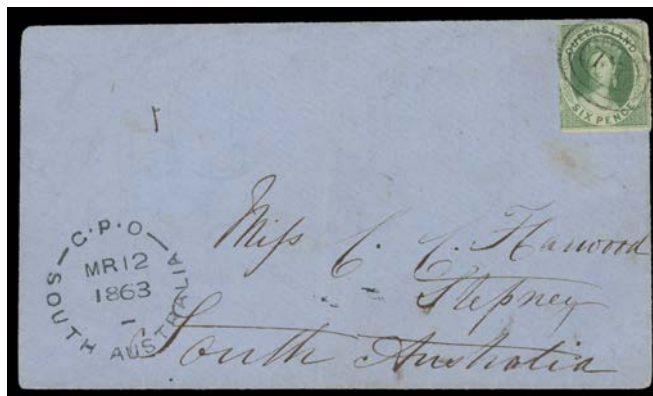 QUEENSLAND
SIX PENCE
G.P.O
MR12
1863
1
SOUTH AUSTRALIA
Miss C. C. Hawood
Stepney
South Australia